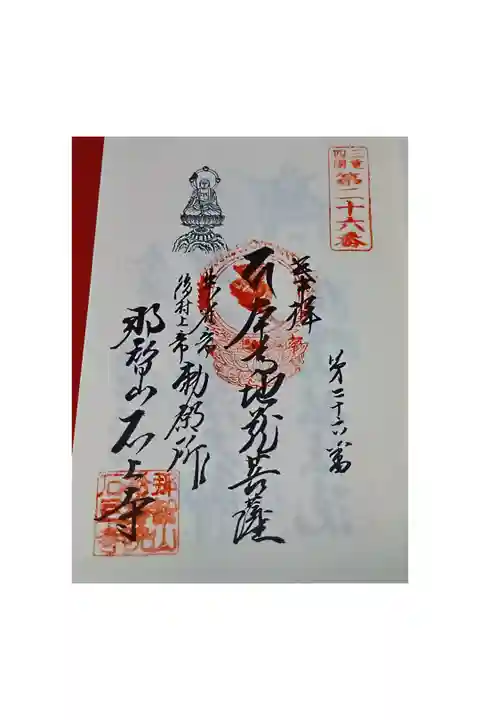 三重
四国
第二十六番
第二十六番
奉拝
本尊地蔵菩薩
後村上帝勅願所
那智山石上寺